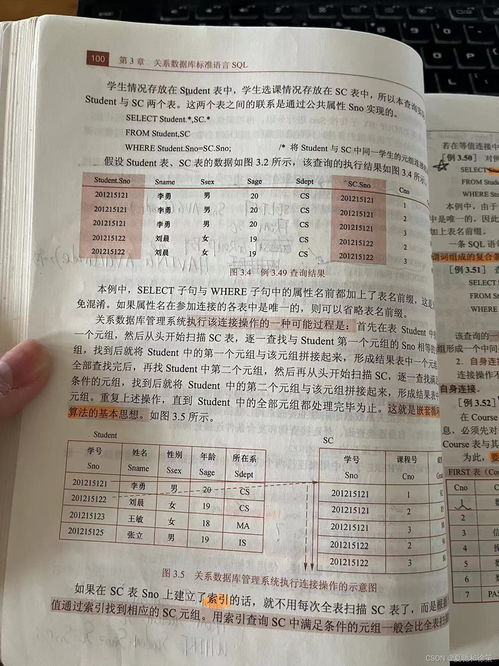 100 第3章 关系数据库标准语言 SQL
学生情况存放在 Student 表中，学生选课情况存放在 SC 表中，所以本查询
Student 与 SC 两个表。这两个表之间的联系是通过公共属性 Sno 实现的。
SELECT Student.*,SC.*
FROM Student,SC
WHERE Student.Sno=SC.Sno; /* 将 Student 与 SC 中同一学生的元组连接
假设 Student 表、SC 表的数据如图 3.2 所示，该查询的执行结果如图 3.4 所示。
Student.Sno Sname Ssex Sage Sdept SC.Sno Cno
201215121 李勇 男 20 CS 201215121 1
201215121 李勇 男 20 CS 201215121 2
201215121 李勇 男 20 CS 201215121 3
201215122 刘晨 女 19 CS 201215122 2
201215122 刘晨 女 19 CS 201215122 3
图 3.4 例 3.49 查询结果
本例中，SELECT 子句与 WHERE 子句中的属性名前都加上了表名前缀，这是
免混淆。如果属性名在参加连接的各表中是唯一的，则可以省略表名前缀。
关系数据库管理系统执行该连接操作的一种可能过程是：首先在表 Student 中
一个元组，然后从头开始扫描 SC 表，逐一查找与 Student 第一个元组的 Sno 相等的
组，找到后就将 Student 中的第一个元组与该元组拼接起来，形成结果表中一个元
全部查找完后，再找 Student 中第二个元组，然后再从头开始扫描 SC，逐一查找满
条件的元组，找到后就将 Student 中的第二个元组与该元组拼接起来，形成结果表中
元组。重复上述操作，直到 Student 中的全部元组都处理完毕为止。这就是嵌套循
算法的基本思想。如图 3.5 所示。
Student
学号 姓名 性别 年龄 所在系
Sno Sname Ssex Sage Sdept
201215121 李勇 男 20 CS
201215122 刘晨 女 19 CS
201215123 王敏 女 18 MA
201215125 张立 男 19 IS
SC
学号 课程号
Sno Cno
201215121 1
201215121 2
201215121 3
201215122 2
201215122 3
图 3.5 关系数据库管理系统执行连接操作的示意图
如果在 SC 表 Sno 上建立了索引的话，就不用每次全表扫描 SC 表了，而是根据
值通过索引找到相应的 SC 元组。用索引查询 SC 中满足条件的元组一般会比全表扫描
若在等值连接中
[例 3.50] 对例
SELECT
FROM Stud
WHERE Stu
本例中，由于
中是唯一的，因此
加上表名前缀。
一条 SQL 语
谓词组成的复合条
[例 3.51]
SELECT
FROM
WHERE
该查询的一
组形成一个中间
2. 自身连接
连接操作不
自身连接。
[例 3.52]
在 Course
息，必须先对
Course 表与其
为此，要
FIRST 表（C
Cno
1
2
3
4
5
6
7 PAS
CSDN @夏驰和徐策